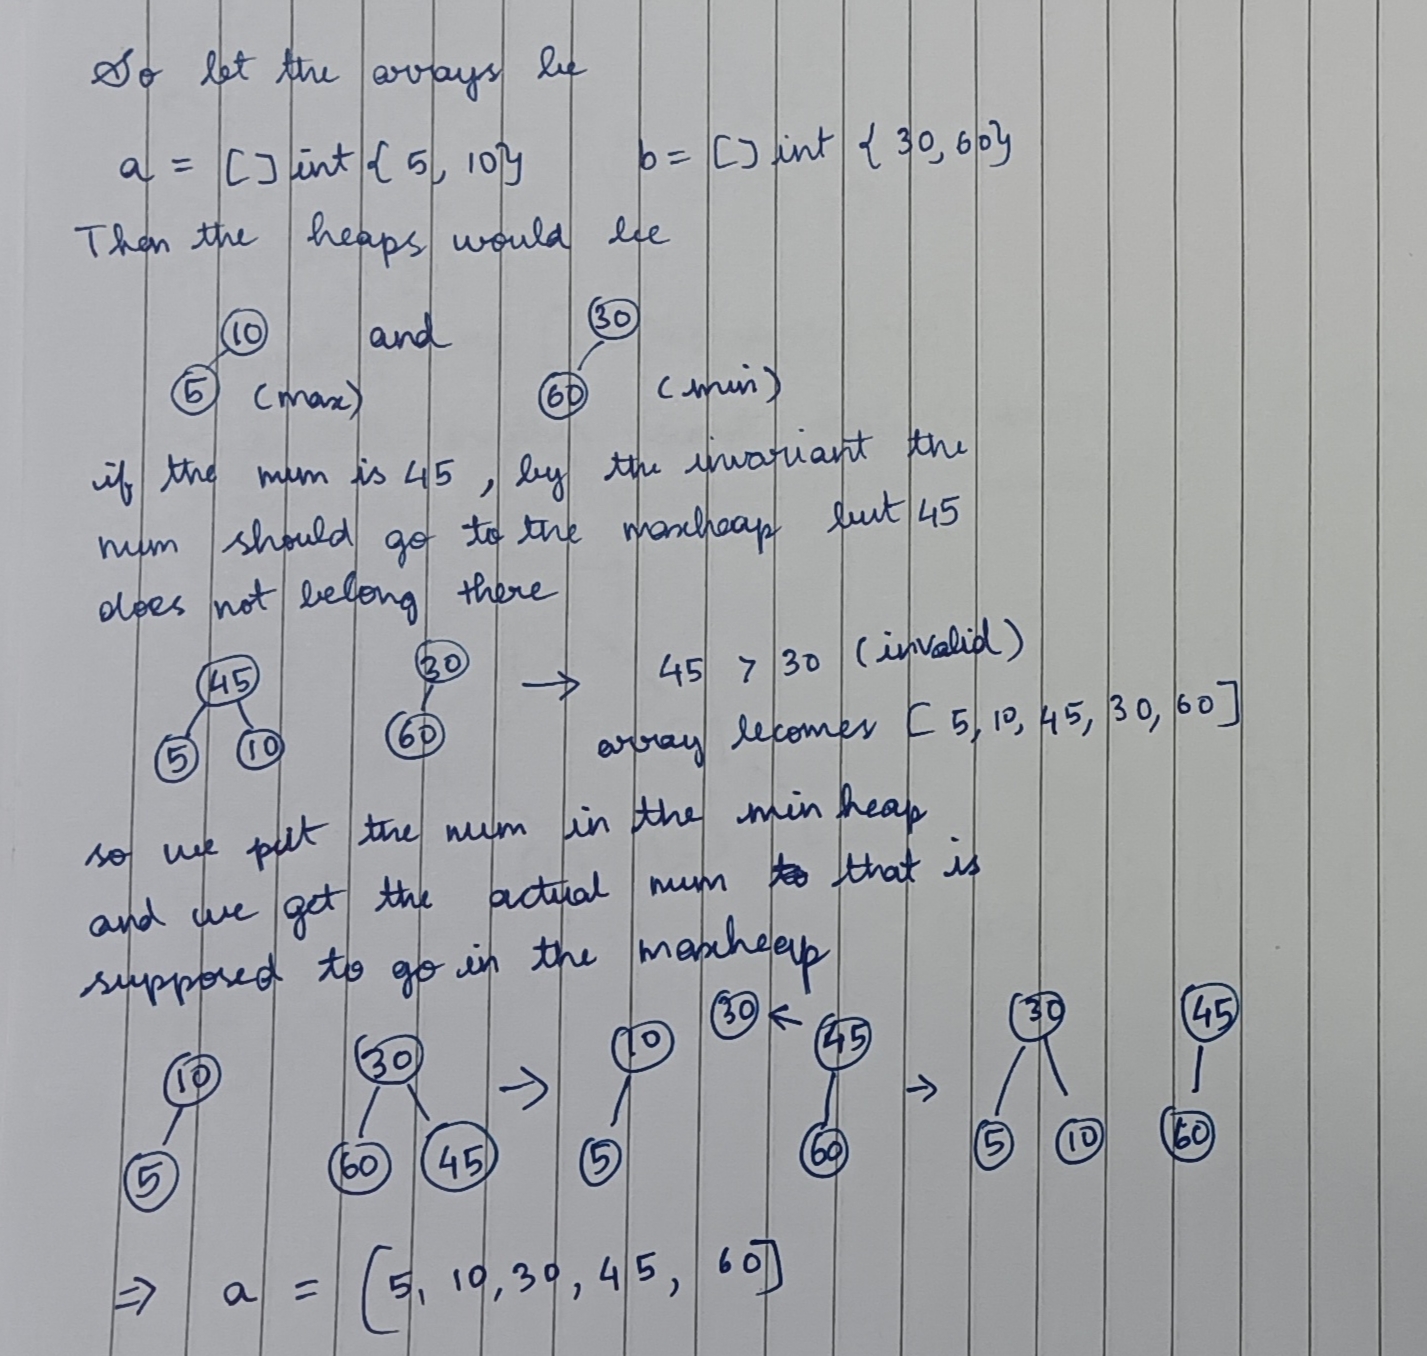 So let the arrays be
a = [ ] int { 5, 10}   b = [ ] int { 30, 60}
Then the heaps would be
10 and 30
5 (max) 60 (min)
if the num is 45 , by the invariant the
num should go to the maxheap but 45
does not belong there
45 30 → 45 > 30 (invalid)
5 10 60 array becomes [ 5, 10, 45, 30, 60 ]
so we put the num in the min heap
and we get the actual num that is
supposed to go in the maxheap
10 30 → 10 30 ← 45 → 30 45
5 60 45 5 60 5 10 60
⇒ a = [5, 10, 30, 45, 60]